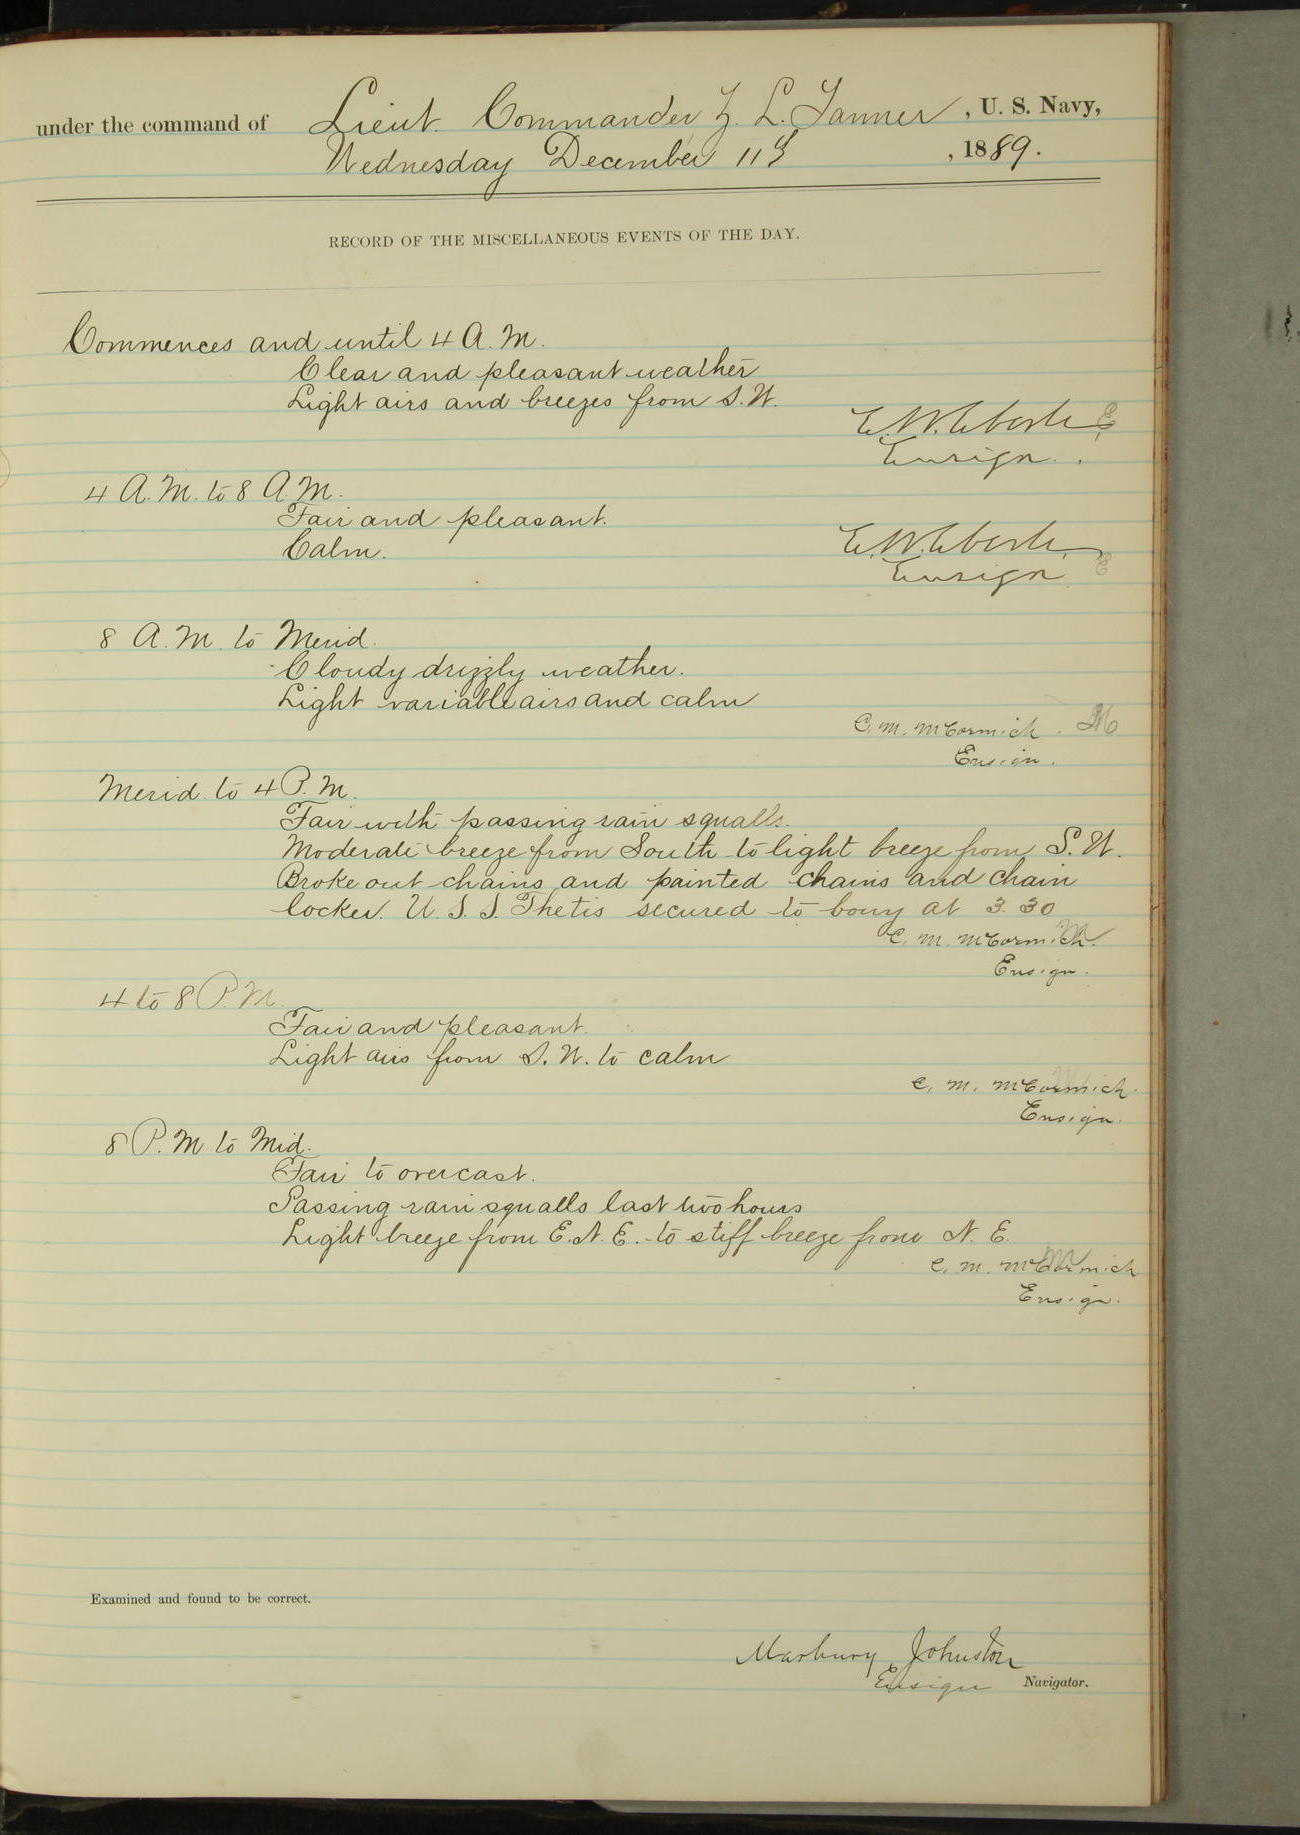 under the command of Lieut. Commander Z. L. Tanner, U. S. Navy,
Wednesday December 11th, 1889.
RECORD OF THE MISCELLANEOUS EVENTS OF THE DAY.
Commences and until 4 A. M.
Clear and pleasant weather
Light airs and breezes from S. W.
E. W. Eberle E
Ensign.
4 A. M. to 8 A. M.
Fair and pleasant.
Calm.
E. W. Eberle. E
Ensign
8 A. M. to Merid.
Cloudy drizzly weather.
Light variable airs and calm
C. M. McCormick. M
Ensign.
Merid. to 4 P. M.
Fair with passing rain squalls.
Moderate breeze from South to light breeze from S. W.
Broke out chains and painted chains and chain
locker. U. S. S. Thetis secured to bouy at 3.30
C. M. McCormick. M
Ensign.
4 to 8 P. M.
Fair and pleasant.
Light airs from S. W. to calm
C. M. McCormick. M
Ensign.
8 P. M to Mid.
Fair to overcast.
Passing rain squalls last two hours
Light breeze from E. N. E. to stiff breeze from N. E.
C. M. McCormick M
Ensign.
Examined and found to be correct.
Marbury Johnston
Ensign Navigator.